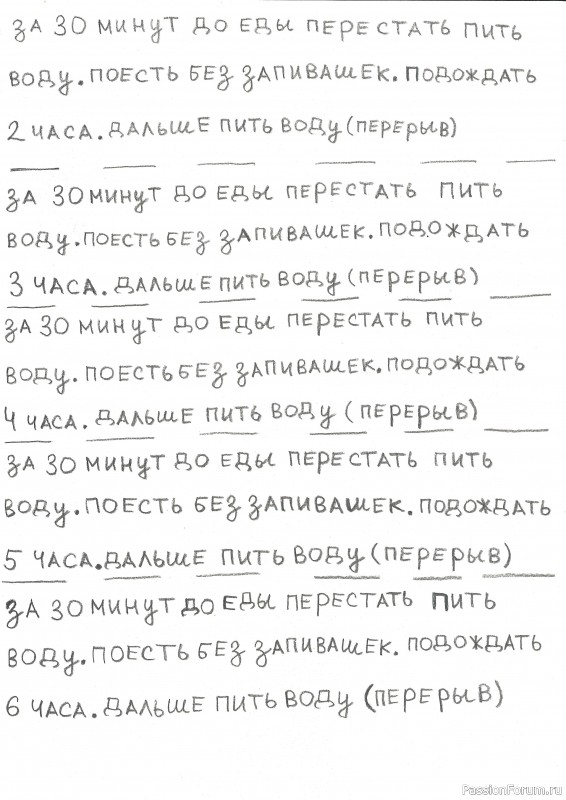 ЗА 30 МИНУТ ДО ЕДЫ ПЕРЕСТАТЬ ПИТЬ
ВОДУ. ПОЕСТЬ БЕЗ ЗАПИВАШЕК. ПОДОЖДАТЬ
2 ЧАСА. ДАЛЬШЕ ПИТЬ ВОДУ (ПЕРЕРЫВ)
ЗА 30 МИНУТ ДО ЕДЫ ПЕРЕСТАТЬ ПИТЬ
ВОДУ. ПОЕСТЬ БЕЗ ЗАПИВАШЕК. ПОДОЖДАТЬ
3 ЧАСА. ДАЛЬШЕ ПИТЬ ВОДУ (ПЕРЕРЫВ)
ЗА 30 МИНУТ ДО ЕДЫ ПЕРЕСТАТЬ ПИТЬ
ВОДУ. ПОЕСТЬ БЕЗ ЗАПИВАШЕК. ПОДОЖДАТЬ
4 ЧАСА. ДАЛЬШЕ ПИТЬ ВОДУ (ПЕРЕРЫВ)
ЗА 30 МИНУТ ДО ЕДЫ ПЕРЕСТАТЬ ПИТЬ
ВОДУ. ПОЕСТЬ БЕЗ ЗАПИВАШЕК. ПОДОЖДАТЬ
5 ЧАСА. ДАЛЬШЕ ПИТЬ ВОДУ (ПЕРЕРЫВ)
ЗА 30 МИНУТ ДО ЕДЫ ПЕРЕСТАТЬ ПИТЬ
ВОДУ. ПОЕСТЬ БЕЗ ЗАПИВАШЕК. ПОДОЖДАТЬ
6 ЧАСА. ДАЛЬШЕ ПИТЬ ВОДУ (ПЕРЕРЫВ)
PassionForum.ru